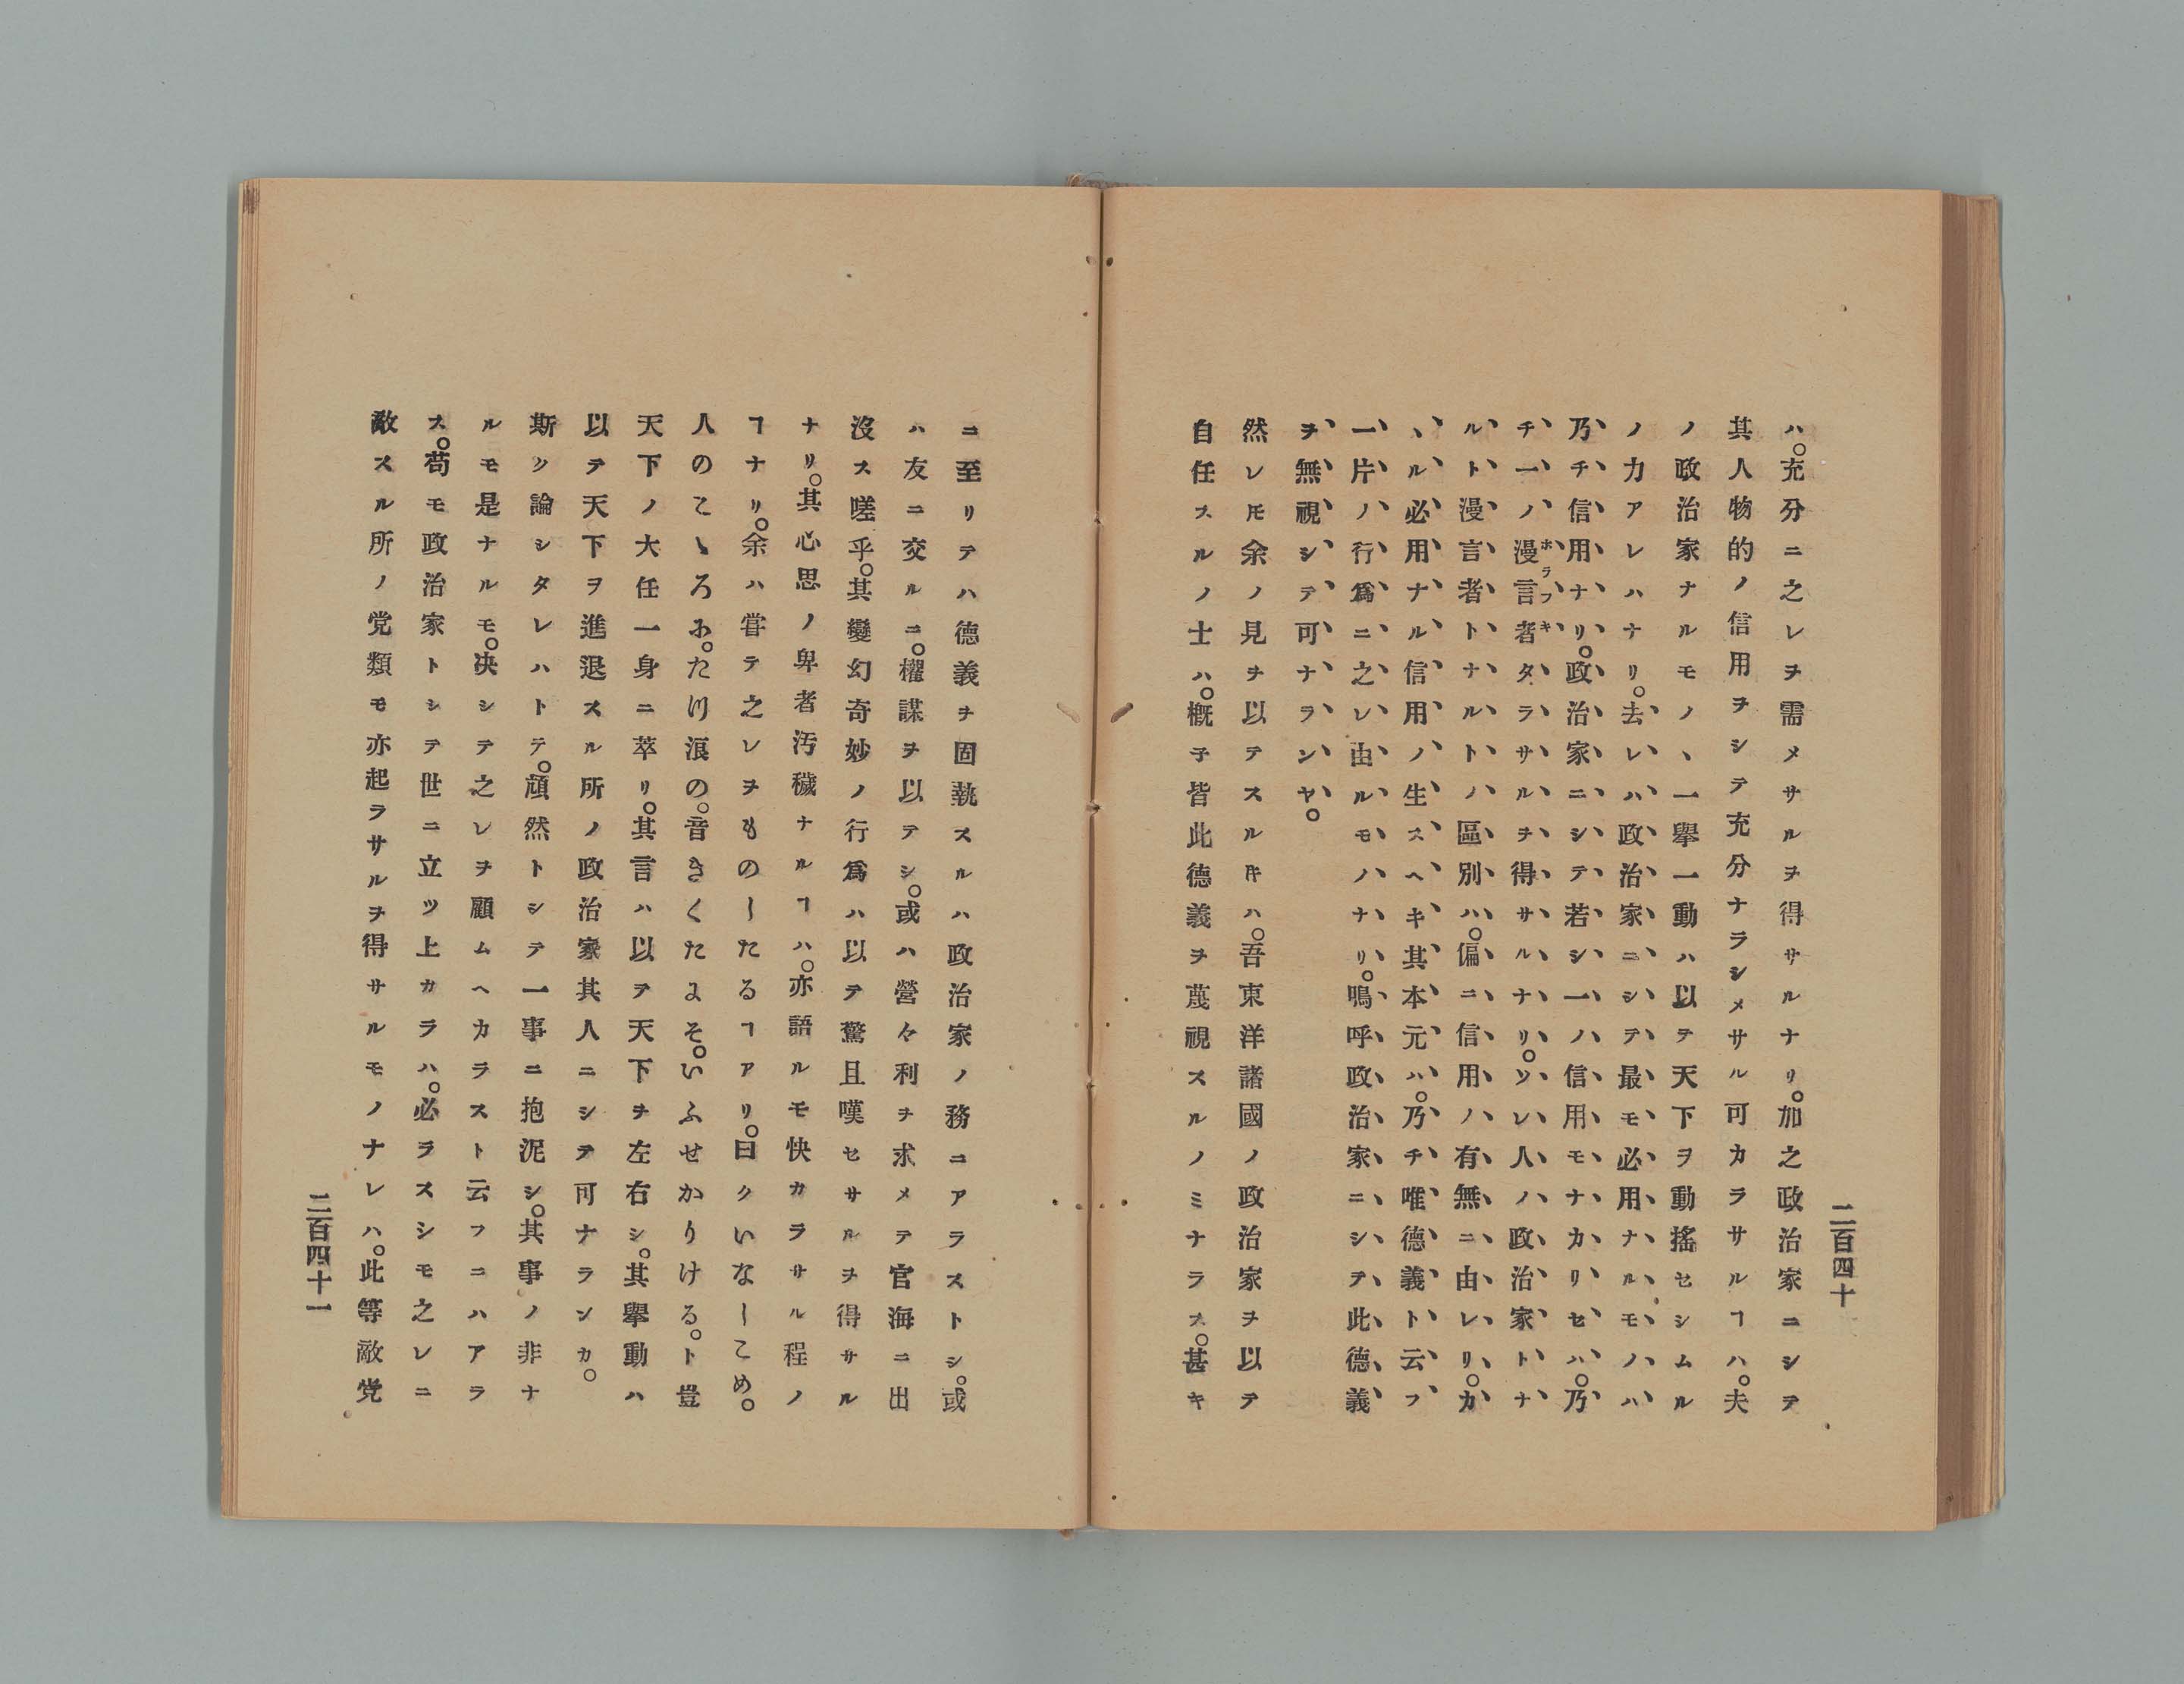 二百四十
ハ。充分ニ之レヲ需メサルヲ得サルナリ。加之政治家ニシテ
其人物的ノ信用ヲシテ充分ナラシメサル可カラサルヿハ。夫
ノ政治家ナルモノヽ一擧一動ハ以テ天下ヲ動搖セシムル
ノ力アレハナリ。去レハ政治家ニシテ最モ必用ナルモノハ
乃チ信用ナリ。政治家ニシテ若シ一ノ信用モナカリセハ。乃
チ一ノ漫言者タラサルヲ得サルナリ。ソレ人ノ政治家トナ
ホラフキ
ルト漫言者トナルトノ區別ハ。偏ニ信用ノ有無ニ由レリ。カ
ヽル必用ナル信用ノ生スヘキ其本元ハ。乃チ唯德義ト云フ
一片ノ行爲ニ之レ由ルモノナリ。嗚呼政治家ニシテ此德義
ヲ無視シテ可ナランヤ。
然レ𪜈余ノ見ヲ以テスルキハ。吾東洋諸國ノ政治家ヲ以テ
自任スルノ士ハ。概子皆此德義ヲ蔑視スルノミナラス。甚キ
ニ至リテハ德義ヲ固執スルハ政治家ノ務ニアラストシ。或
ハ友ニ交ルニ。權謀ヲ以テシ。或ハ營々利ヲ求メテ官海ニ出
沒ス嗟乎。其變幻奇妙ノ行爲ハ以テ驚且嘆セサルヲ得サル
ナリ。其心思ノ卑者汚穢ナルヿハ。亦語ルモ快カラサル程ノ
ヿナリ。余ハ甞テ之レヲものしたるヿアリ。曰クいなしこめ。
人のこゝろふ。た川浪の。音きくたよそ。いふせかりける。ト豈
天下ノ大任一身ニ萃リ。其言ハ以ヲ天下チ左右シ。其擧動ハ
以テ天下ヲ進退スル所ノ政治家其人ニシテ可ナランカ。
斯ク論シタレハトテ。頑然トシテ一事ニ抱泥シ。其事ノ非ナ
ルモ是ナルモ。决シテ之レヲ顧ムヘカラスト云フニハアラ
ス。苟モ政治家トシテ世ニ立ツ上カラハ。必ラスシモ之レニ
敵スル所ノ党類モ亦起ラサルヲ得サルモノナレハ。此等敵党
二百四十一